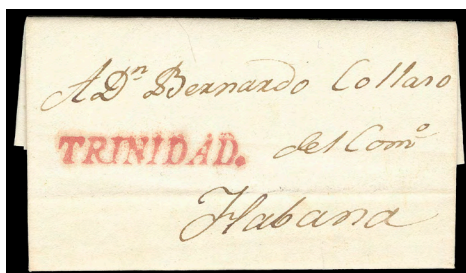 A Dⁿ Bernardo Collaso
TRINIDAD. del Comº
Habana